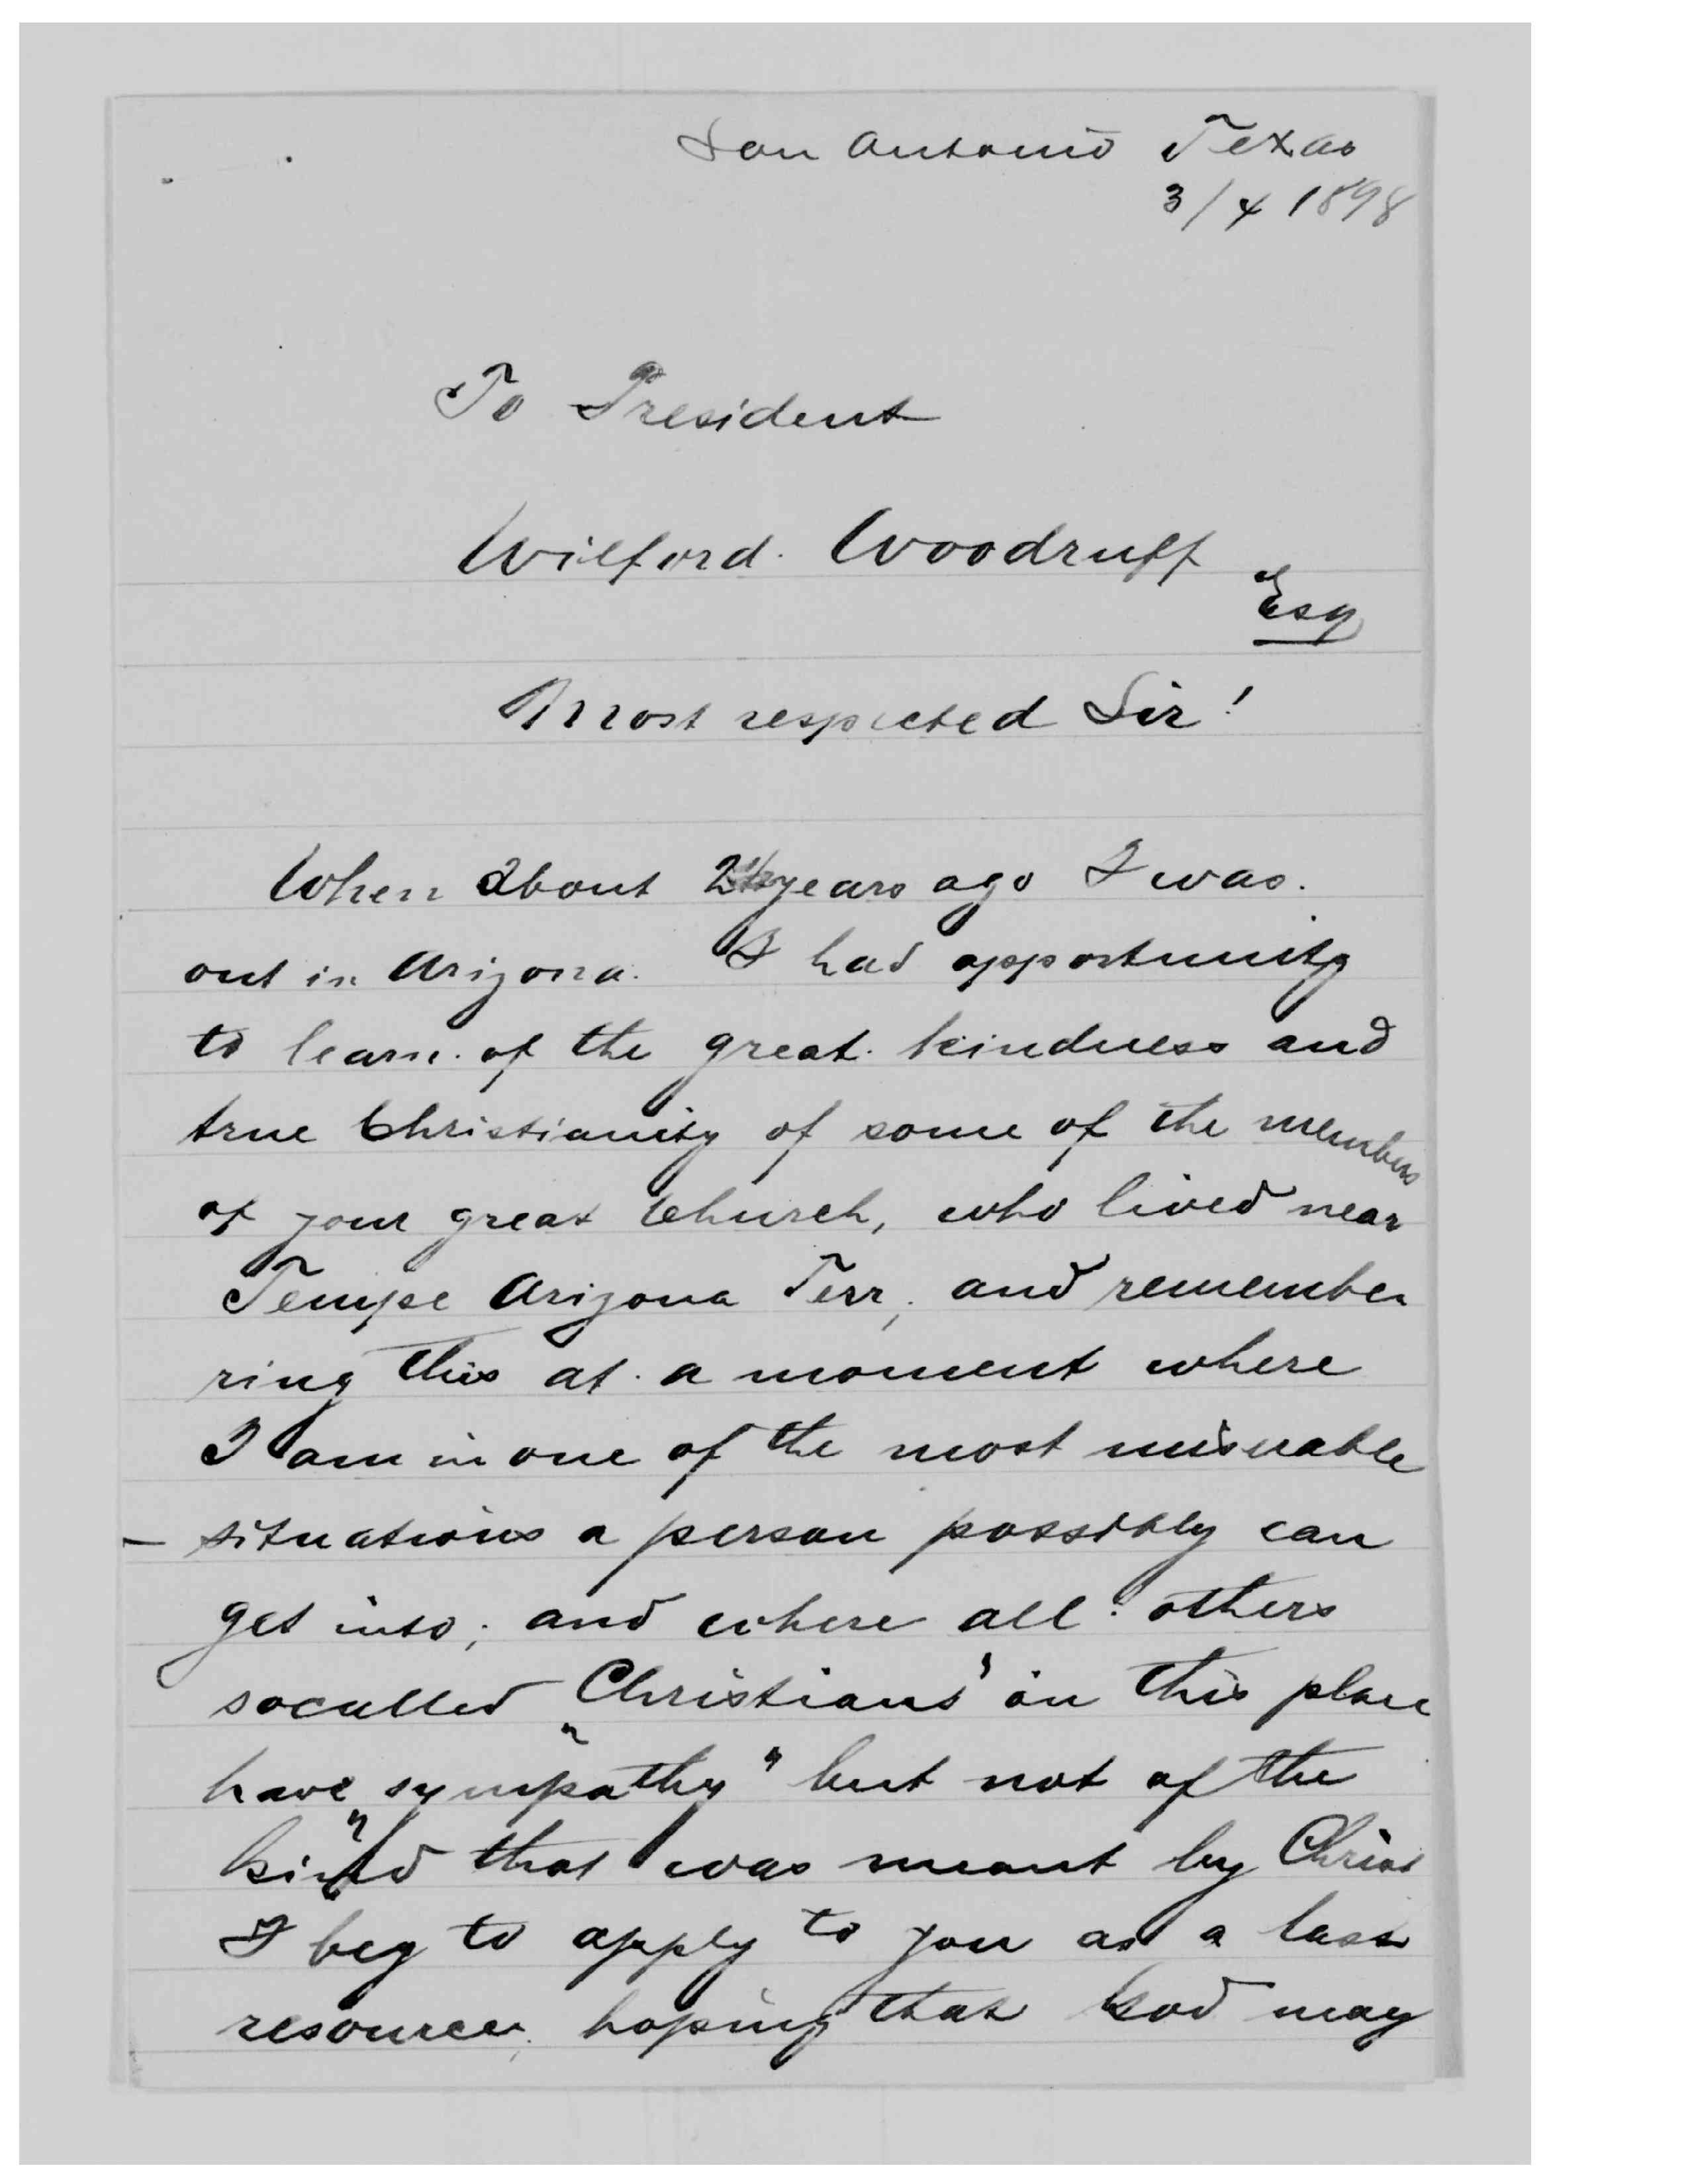 San Antonio Texas
3/4 1898
To President
Wilford. Woodruff
Esq
Most respected Sir!
When about 2 years ago I was.
out in Arizona. I had opportunity
to learn. of the great. kindness and
true Christianity of some of the members
of your great Church, who lived near
Tempe Arizona Terr, and remembe
ring this at a moment where
I am in one of the most miserable
situations a person possibly can
get into; and where all others
socalled "Christians" in this place
have "sympathy" but not of the
kind that was meant by Christ
I beg to apply to you as a last
resource, hoping that God may